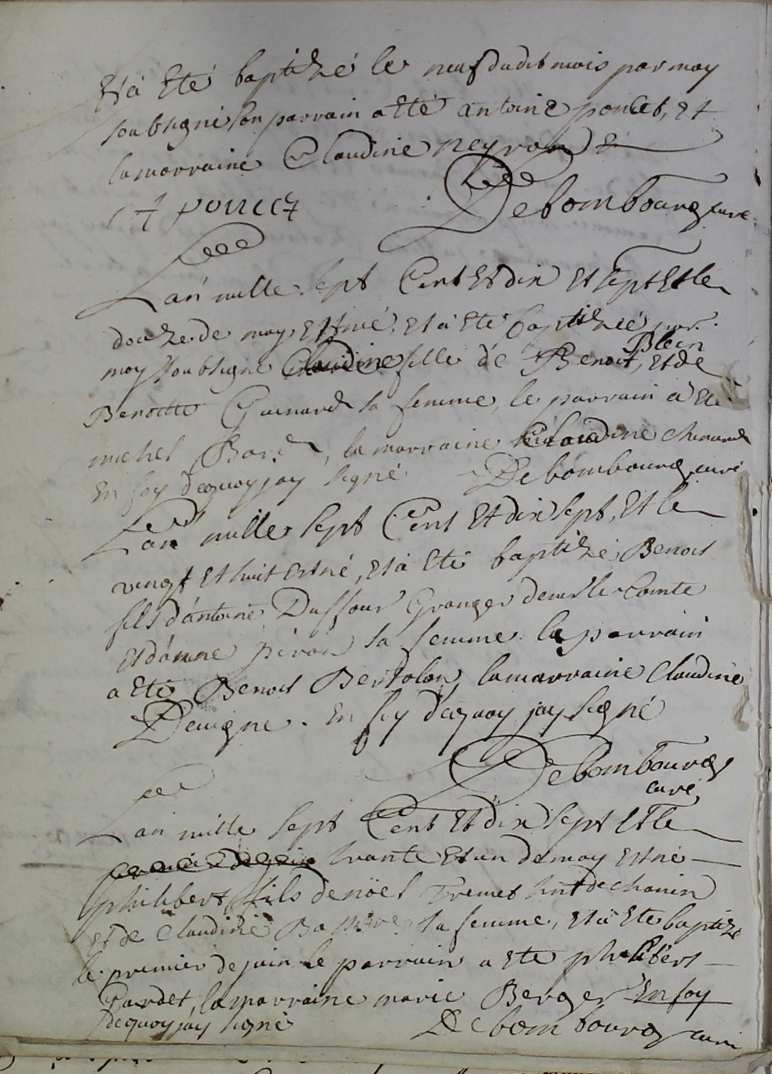 Et à Eté baptizé le neuf dudit mois par moy
soubsigné son parrain a eté antoine poncet, et
la marraine Claudine neyron
A poncet
Debombourg curé
L'an mille sept Cent Et dix Et sept Et le
douze de may Est né, et à Eté baptizeé par
moy soubsigné Claudine fille de Benoit Blein, et de
Benoitte Guinard sa femme, le parrain à Eté
michel , la marraine Claudine
En foy dequoy jay signé Debombourg curé
L'an mille sept Cent Et dix sept, Et le
vingt Et huit est né, et à Eté baptizé Benoit
fils d'antoine Duffour Granger de le Comte
et d'anne sa femme. le parrain
a eté Benoit Bertolon, la marraine Claudine
Devigne. En foy d'equoy jay signé
Debombourg
curé
L'an mille sept Cent Et dix sept Et le
trante Et un de may est né
philibert fils de noël de
et de Claudine sa femme, et à Eté baptizé
le premier de juin le parrain a eté philibert
Gardet, la marraine marie Berger En foy
dequoy jay signé Debombourg curé